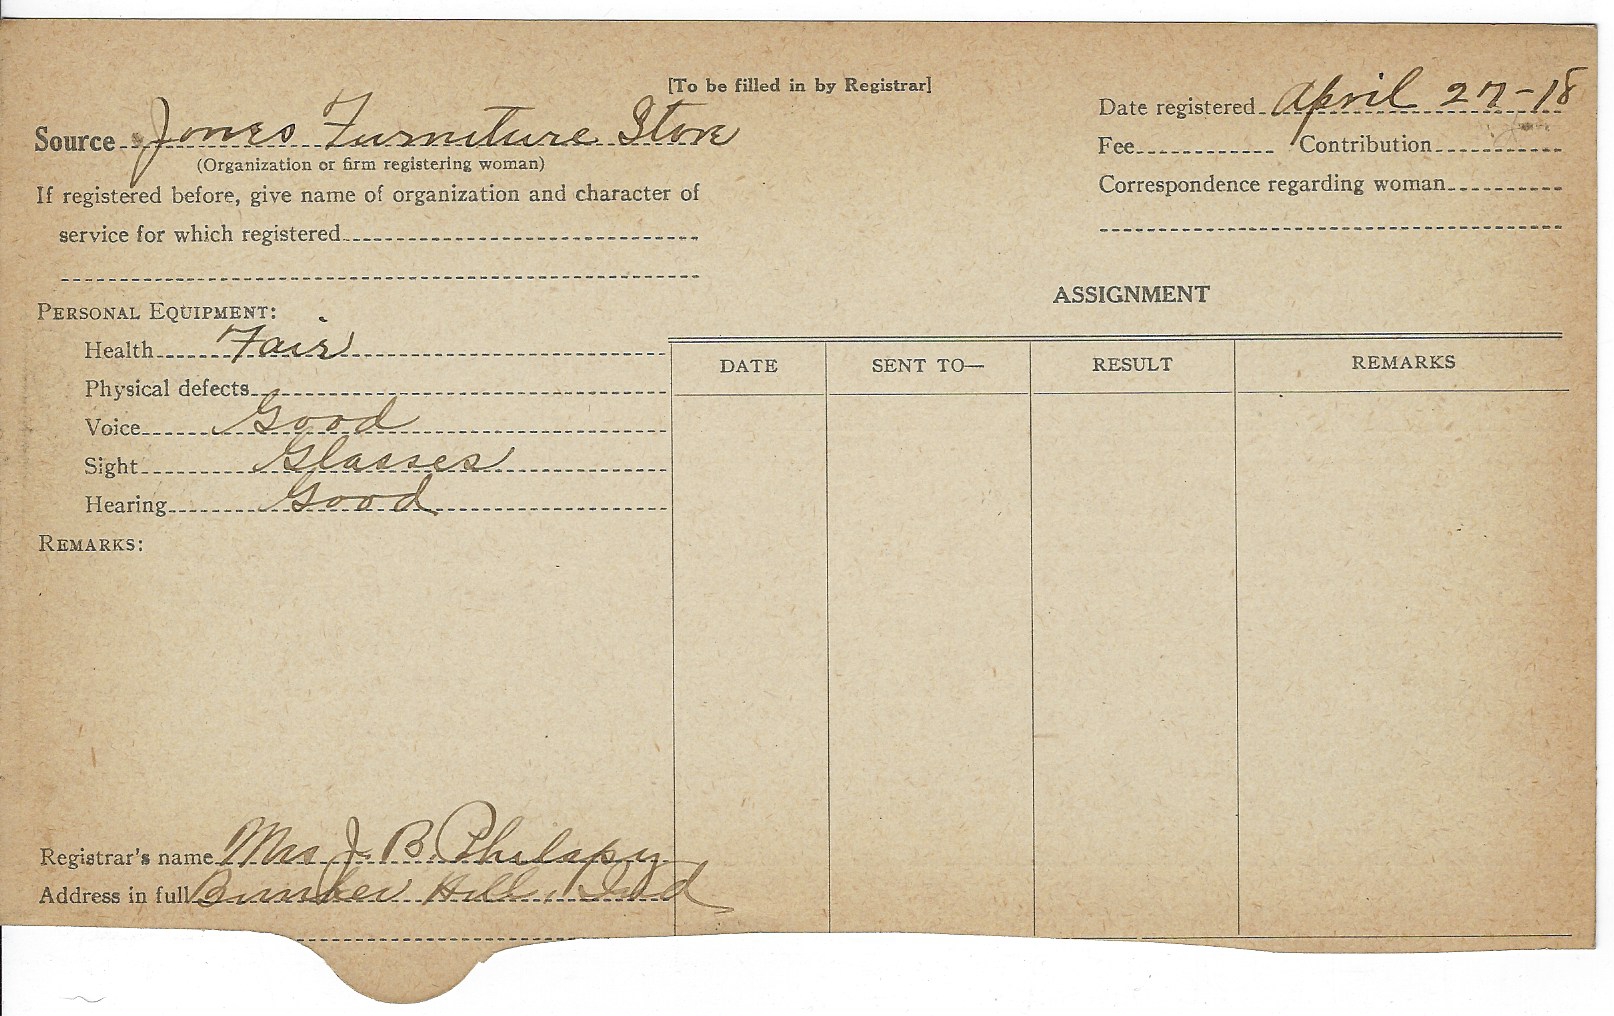 [To be filled in by Registrar]
Source Jones Furniture Store
(Organization or firm registering woman)
If registered before, give name of organization and character of
service for which registered
Date registered April 27-18
Fee Contribution
Correspondence regarding woman
PERSONAL EQUIPMENT:
Health Fair
Physical defects
Voice Good
Sight Glasses
Hearing Good
REMARKS:
ASSIGNMENT
DATE SENT TO— RESULT REMARKS
Registrar's name Mrs J. B. Philapy
Address in full Bunker Hill, Ind